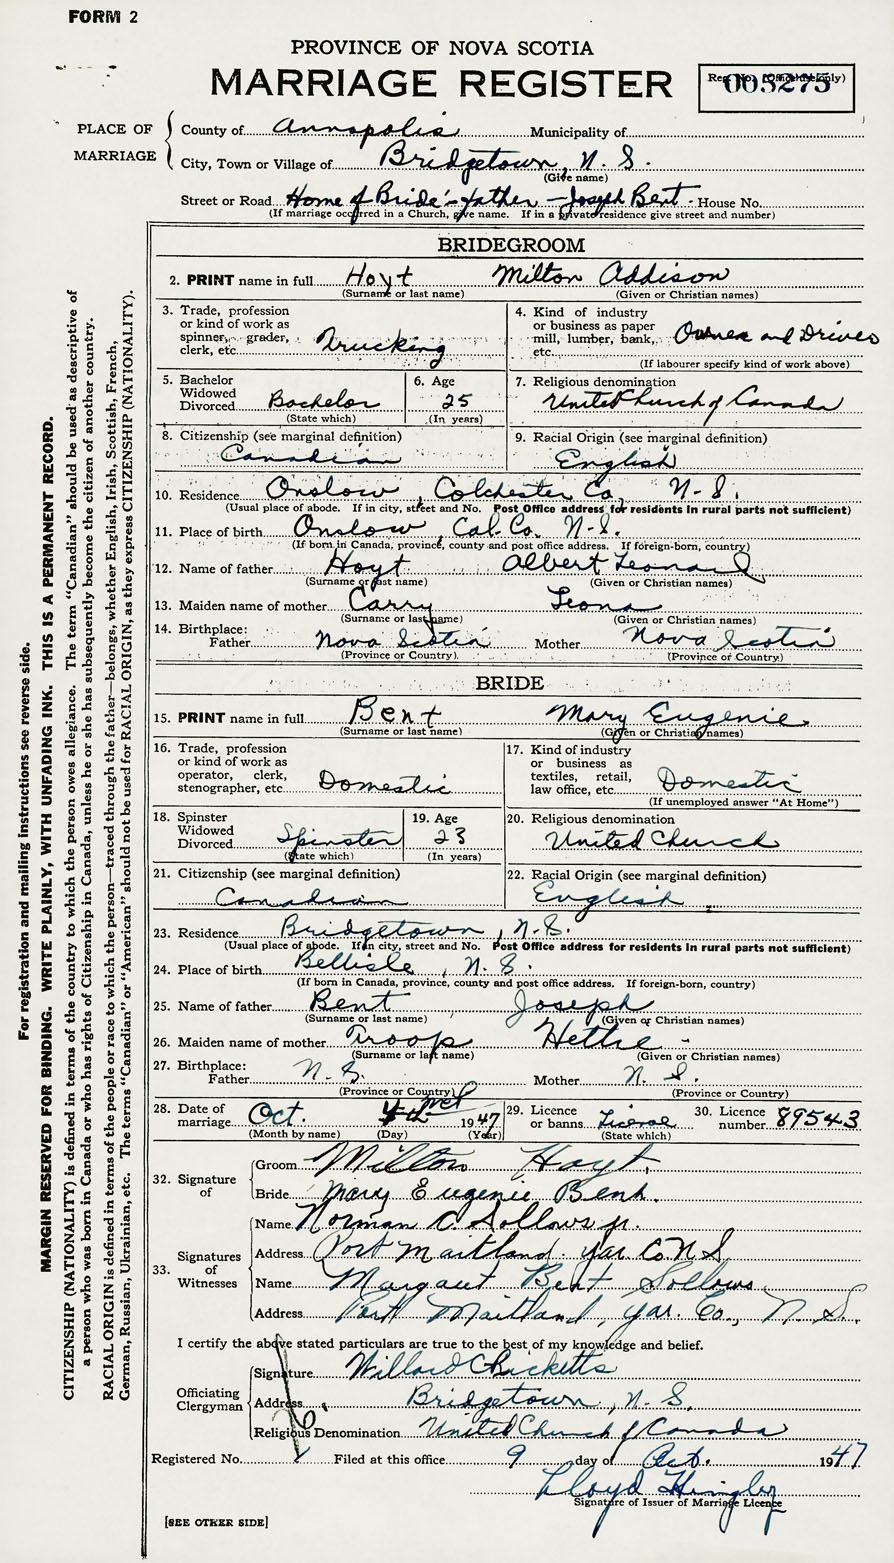 FORM 2
PROVINCE OF NOVA SCOTIA
MARRIAGE REGISTER
Reg. No. (Office use only)
005275
PLACE OF MARRIAGE
County of Annapolis Municipality of
City, Town or Village of Bridgetown, N. S.
(Give name)
Street or Road Home of Bride's father - Joseph Bent - House No.
(If marriage occurred in a Church, give name. If in a private residence give street and number)
BRIDEGROOM
2. PRINT name in full Hoyt Milton Addison
(Surname or last name) (Given or Christian names)
3. Trade, profession or kind of work as spinner, grader, clerk, etc. Trucking
4. Kind of industry or business as paper mill, lumber, bank, etc. Owner and Driver
(If labourer specify kind of work above)
5. Bachelor Widowed Divorced Bachelor
(State which)
6. Age 25
(In years)
7. Religious denomination
United Church of Canada
8. Citizenship (see marginal definition)
Canadian
9. Racial Origin (see marginal definition)
English
10. Residence Onslow, Colchester Co, N-S.
(Usual place of abode. If in city, street and No. Post Office address for residents in rural parts not sufficient)
11. Place of birth Onslow, Col-Co. N-S.
(If born in Canada, province, county and post office address. If foreign-born, country)
12. Name of father Hoyt Albert Leonard
(Surname or last name) (Given or Christian names)
13. Maiden name of mother Carry Leona
(Surname or last name) (Given or Christian names)
14. Birthplace:
Father Nova Scotia Mother Nova Scotia
(Province or Country) (Province or Country)
BRIDE
15. PRINT name in full Bent Mary Eugenie
(Surname or last name) (Given or Christian names)
16. Trade, profession or kind of work as operator, clerk, stenographer, etc Domestic
17. Kind of industry or business as textiles, retail, law office, etc. Domestic
(If unemployed answer "At Home")
18. Spinster Widowed Divorced Spinster
(State which)
19. Age 23
(In years)
20. Religious denomination
United Church
21. Citizenship (see marginal definition)
Canadian
22. Racial Origin (see marginal definition)
English
23. Residence Bridgetown, N.S.
(Usual place of abode. If in city, street and No. Post Office address for residents in rural parts not sufficient)
24. Place of birth Bellisle, N. S.
(If born in Canada, province, county and post office address. If foreign-born, country)
25. Name of father Bent Joseph
(Surname or last name) (Given or Christian names)
26. Maiden name of mother Troop Hettie -
(Surname or last name) (Given or Christian names)
27. Birthplace:
Father N. S. Mother N. S.
(Province or Country) (Province or Country)
28. Date of marriage Oct. 1947
(Month by name) (Day) (Year)
29. Licence or banns License
(State which)
30. Licence number 89543
32. Signature of
Groom Milton Hoyt.
Bride Mary Eugenie Bent.
33. Signatures of Witnesses
Name Norman C. Sollows jr.
Address Port Maitland. Yar Co. N S
Name Margaret Bent Sollows
Address Port Maitland, Yar. Co., N. S.
I certify the above stated particulars are true to the best of my knowledge and belief.
Officiating Clergyman
Signature Willard C
Address Bridgetown, N. S.
Religious Denomination United Church of Canada
Registered No. Filed at this office 9 day of Oct. 1947
Lloyd
Signature of Issuer of Marriage Licence
[SEE OTHER SIDE]
For registration and mailing instructions see reverse side.
MARGIN RESERVED FOR BINDING. WRITE PLAINLY, WITH UNFADING INK. THIS IS A PERMANENT RECORD.
CITIZENSHIP (NATIONALITY) is defined in terms of the country to which the person owes allegiance. The term "Canadian" should be used as descriptive of
a person who was born in Canada or who has rights of Citizenship in Canada, unless he or she has subsequently become the citizen of another country.
RACIAL ORIGIN is defined in terms of the people or race to which the person—traced through the father—belongs, whether English, Irish, Scottish, French,
German, Russian, Ukrainian, etc. The terms "Canadian" or "American" should not be used for RACIAL ORIGIN, as they express CITIZENSHIP (NATIONALITY).